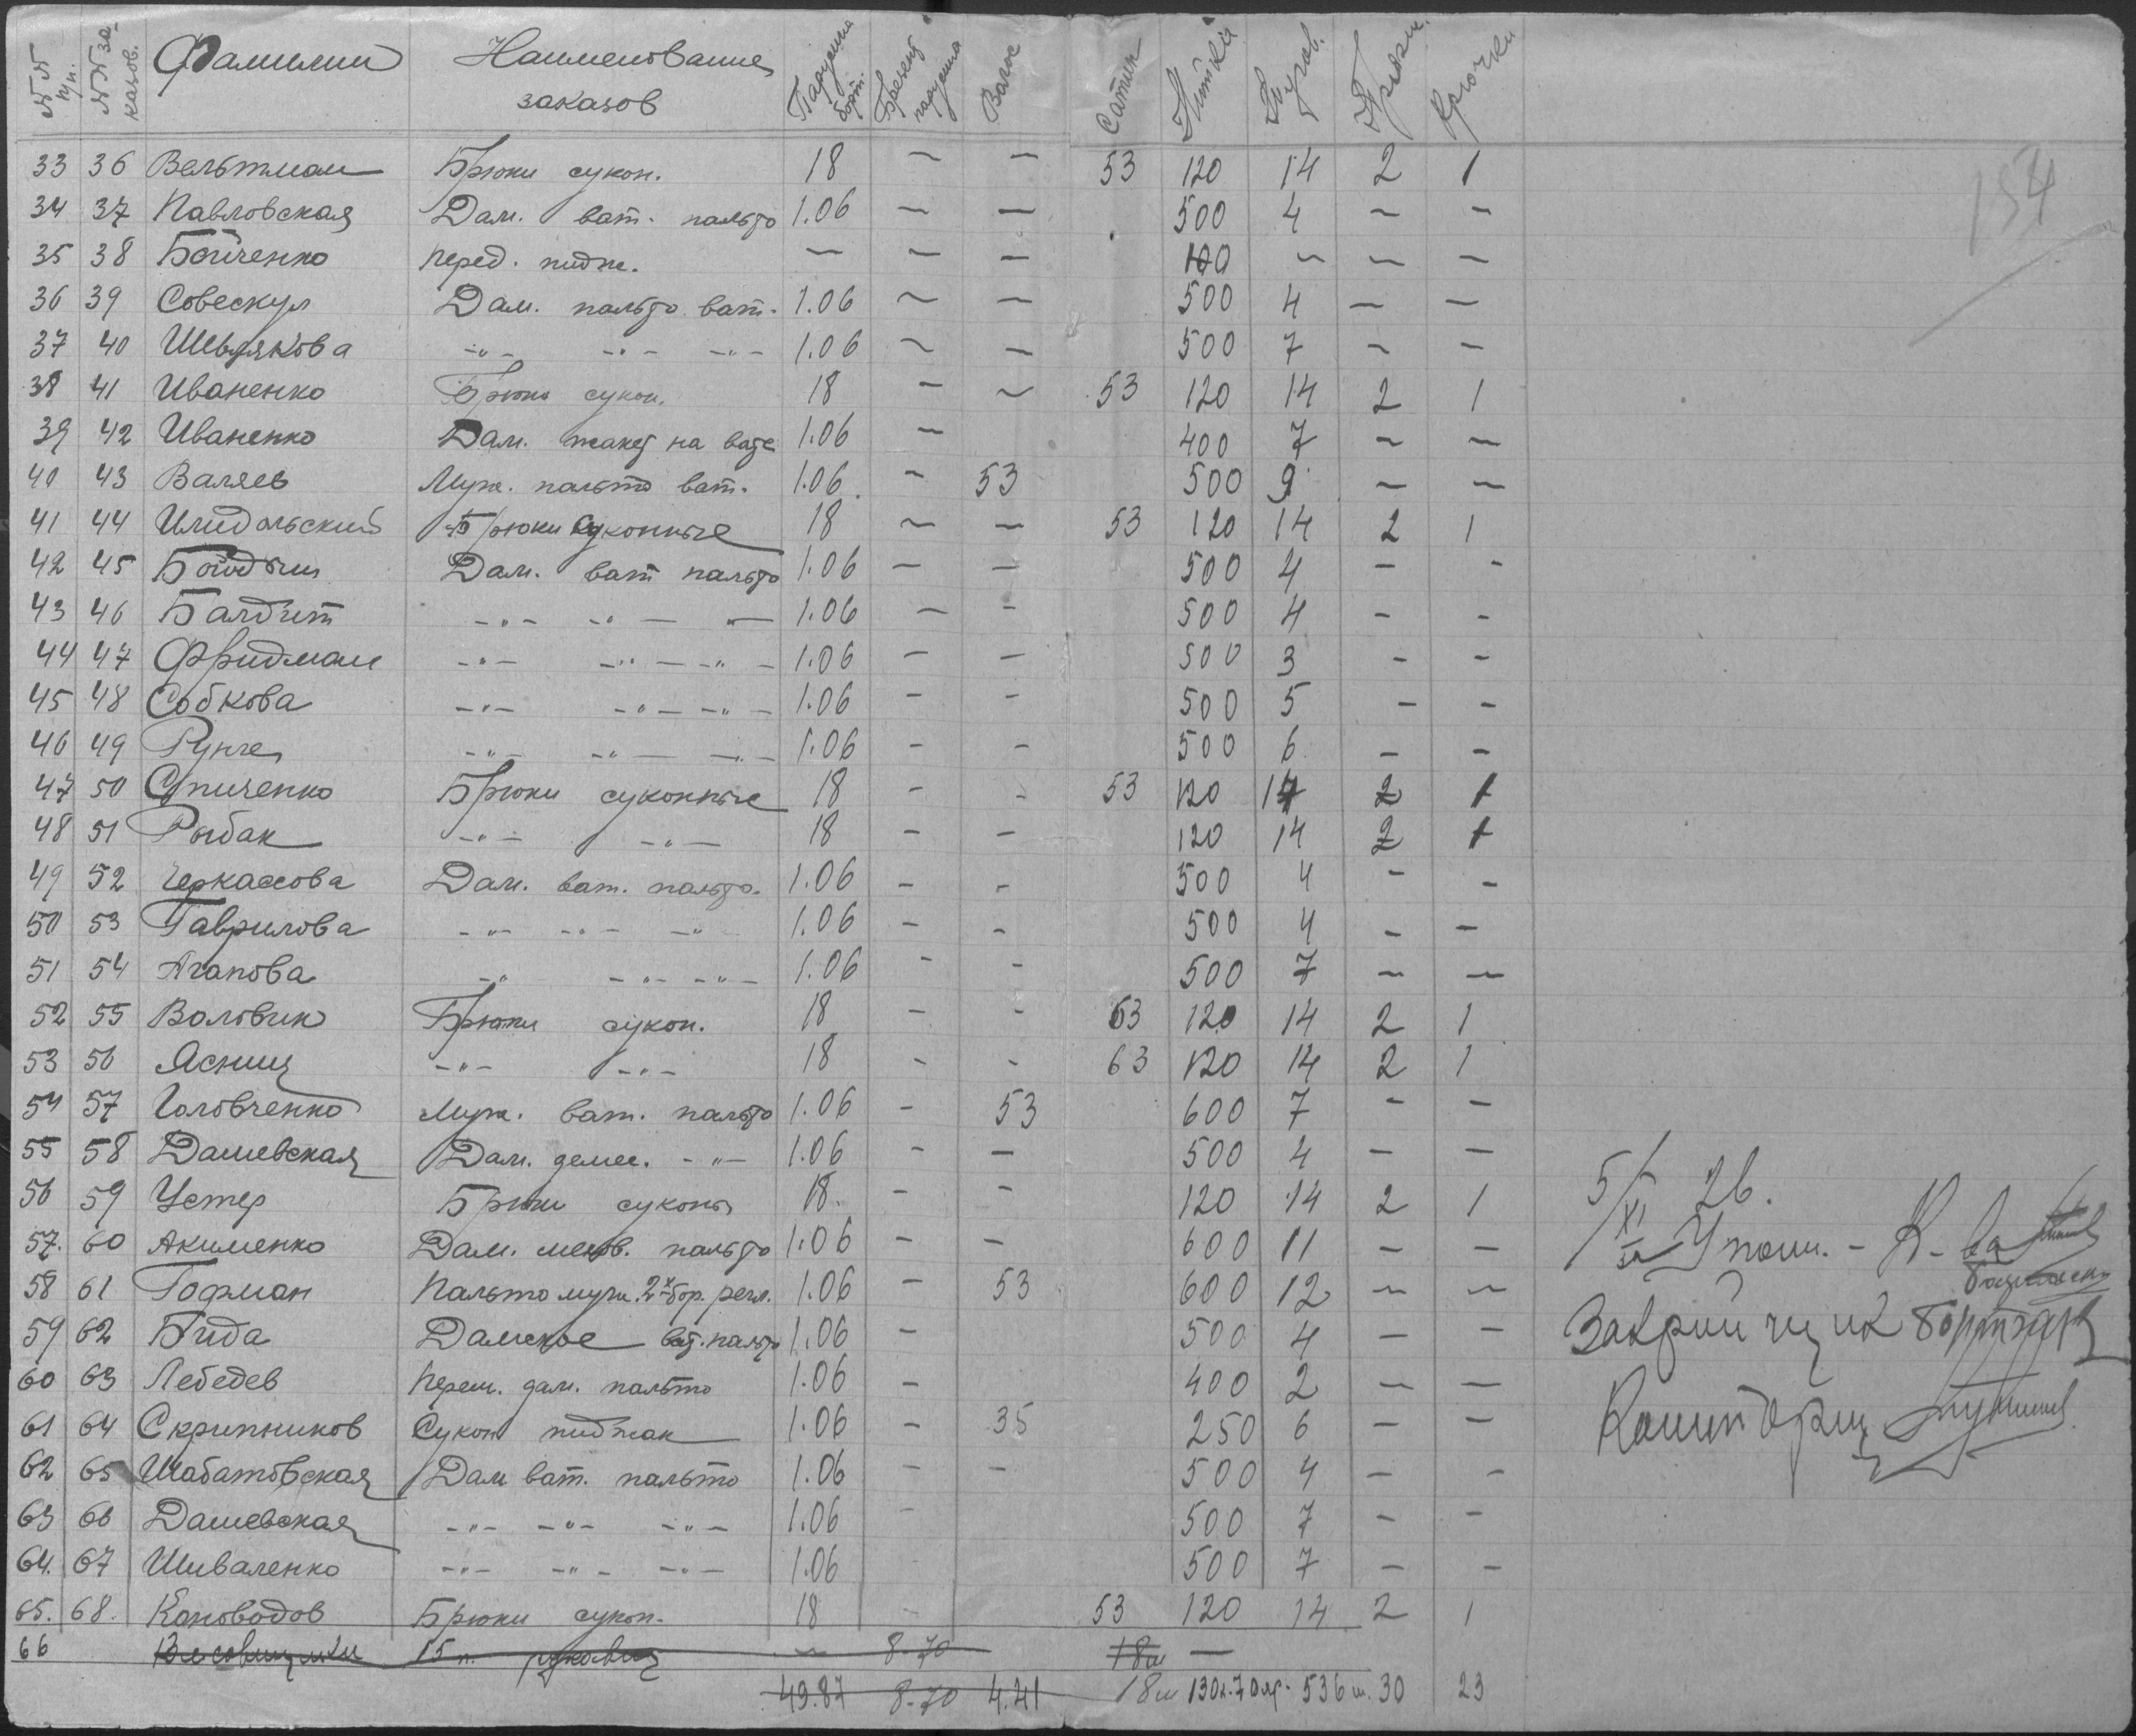 №№ п/п. №№ заказов. Фамилии Наименование заказов Парусина борт. Брезент парусина Сатин Нитки Пугов. Пряжк. Крючки
154
33 36 Вельтман Брюки сукон. 18 — — 53 120 14 2 1
34 37 Павловская Дам. ват. пальто 1.06 — — 500 4 — —
35 38 Бойченко перед. пидж. — — — 100 — — —
36 39 Совескул Дам. пальто ват. 1.06 — — 500 4 — —
37 40 Шевлякова -"- -"- -"- 1.06 — — 500 7 — —
38 41 Иваненко Брюки сукон. 18 — — 53 120 14 2 1
39 42 Иваненко Дам. жакет на вате 1.06 — 400 7 — —
40 43 Валяев Муж. пальто ват. 1.06 — 53 500 9 — —
41 44 Брюки Суконные 18 — — 53 120 14 2 1
42 45 Дам. ват пальто 1.06 — — 500 4 — -
43 46 -"- -"- -"- 1.06 — — 500 4 - -
44 47 Фридман -"- -"- -"- 1.06 — — 500 3 - -
45 48 Собкова -"- -"- -"- 1.06 - - 500 5 - -
46 49 Рунге -"- -"- -"- 1.06 - - 500 6 - -
47 50 Спиченко Брюки суконные 18 - - 53 120 14 2 1
48 51 Рыбак -"- -"- 18 - - 120 14 2 1
49 52 Черкасова Дам. ват. пальто. 1.06 - - 500 4 - -
50 53 Гаврилова -"- -"- -"- 1.06 - - 500 4 - -
51 54 Агапова -" -"- -"- 1.06 - - 500 7 - -
52 55 Воловик Брюки сукон. 18 - - 63 120 14 2 1
53 56 Ясниц -"- -"- 18 - - 63 120 14 2 1
54 57 Головченко Муж. ват. пальто 1.06 - 53 600 7 - -
55 58 Дашевская Дам. демис. -"- 1.06 - — 500 4 - —
56 59 Устер Брюки суконы 18. - - 120 14 2 1
57. 60 Акименко Дам. пальто 1.06 - - 600 11 - -
58 61 Гофман Пальто муж. 2х бор. регл. 1.06 - 53 600 12 - -
59 62 Бида Дамское ват. пальто 1.06 - 500 4 - -
60 63 Лебедев переш. дам. пальто 1.06 - 400 2 - -
61 64 Скрипников Сукон пиджак 1.06 - 35 250 6 - -
62 65 Шабатовская Дам ват. пальто 1.06 - - 500 4 - -
63 66 Дашевская -"- -"- -"- 1.06 - 500 7 - -
64. 67 Шиваленко -"- -"- -"- 1.06 500 7 - -
65. 68. Коноводов Брюки сукон. 18 - 53 120 14 2 1
66 15 п. рукавиц — 8-70 18м —
49.87 8-70 4.41 18м 130к.70яр. 536 ш. 30 23
5/XI 26.
Закройщик